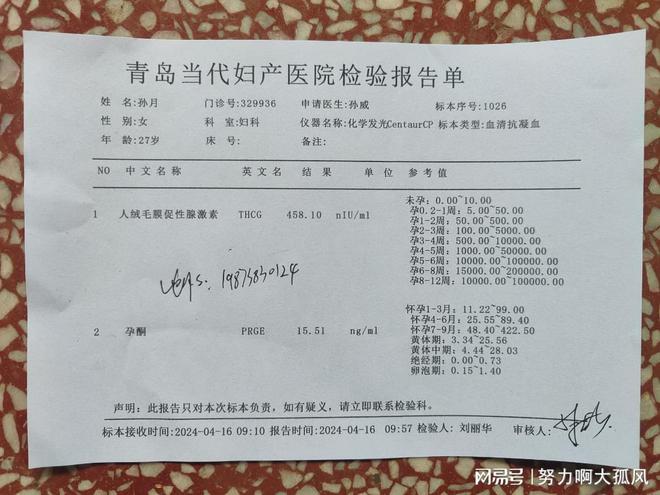 青岛当代妇产医院检验报告单
姓 名:孙月 门诊号:329936 申请医生:孙威 标本序号:1026
性 别:女 科 室:妇科 仪器名称:化学发光CentaurCP 标本类型:血清抗凝血
年 龄:27岁 床 号: 备注:
NO 中文名称 英文名 结 果 单 位 参考值
未孕: 0.00~10.00
孕0.2-1周: 5.00~50.00
1 人绒毛膜促性腺激素 THCG 458.10 nIU/ml 孕1-2周: 50.00~500.00
孕2-3周: 100.00~5000.00
孕3-4周: 500.00~10000.00
孕4-5周: 1000.00~50000.00
孕5-6周: 10000.00~100000.00
孕6-8周: 15000.00~200000.00
孕8-12周: 10000.00~100000.00
19875830124
怀孕1-3月: 11.22~99.00
怀孕4-6月: 25.55~89.40
2 孕酮 PRGE 15.51 ng/ml 怀孕7-9月: 48.40~422.50
黄体期: 3.34~25.56
黄体中期: 4.44~28.03
绝经期: 0.00~0.73
卵泡期: 0.15~1.40
声明: 此报告只对本次标本负责, 如有疑义, 请立即联系检验科。
标本接收时间:2024-04-16 09:10 报告时间:2024-04-16 09:57 检验人: 刘丽华 审核人:
网易号 | 努力啊大孤风